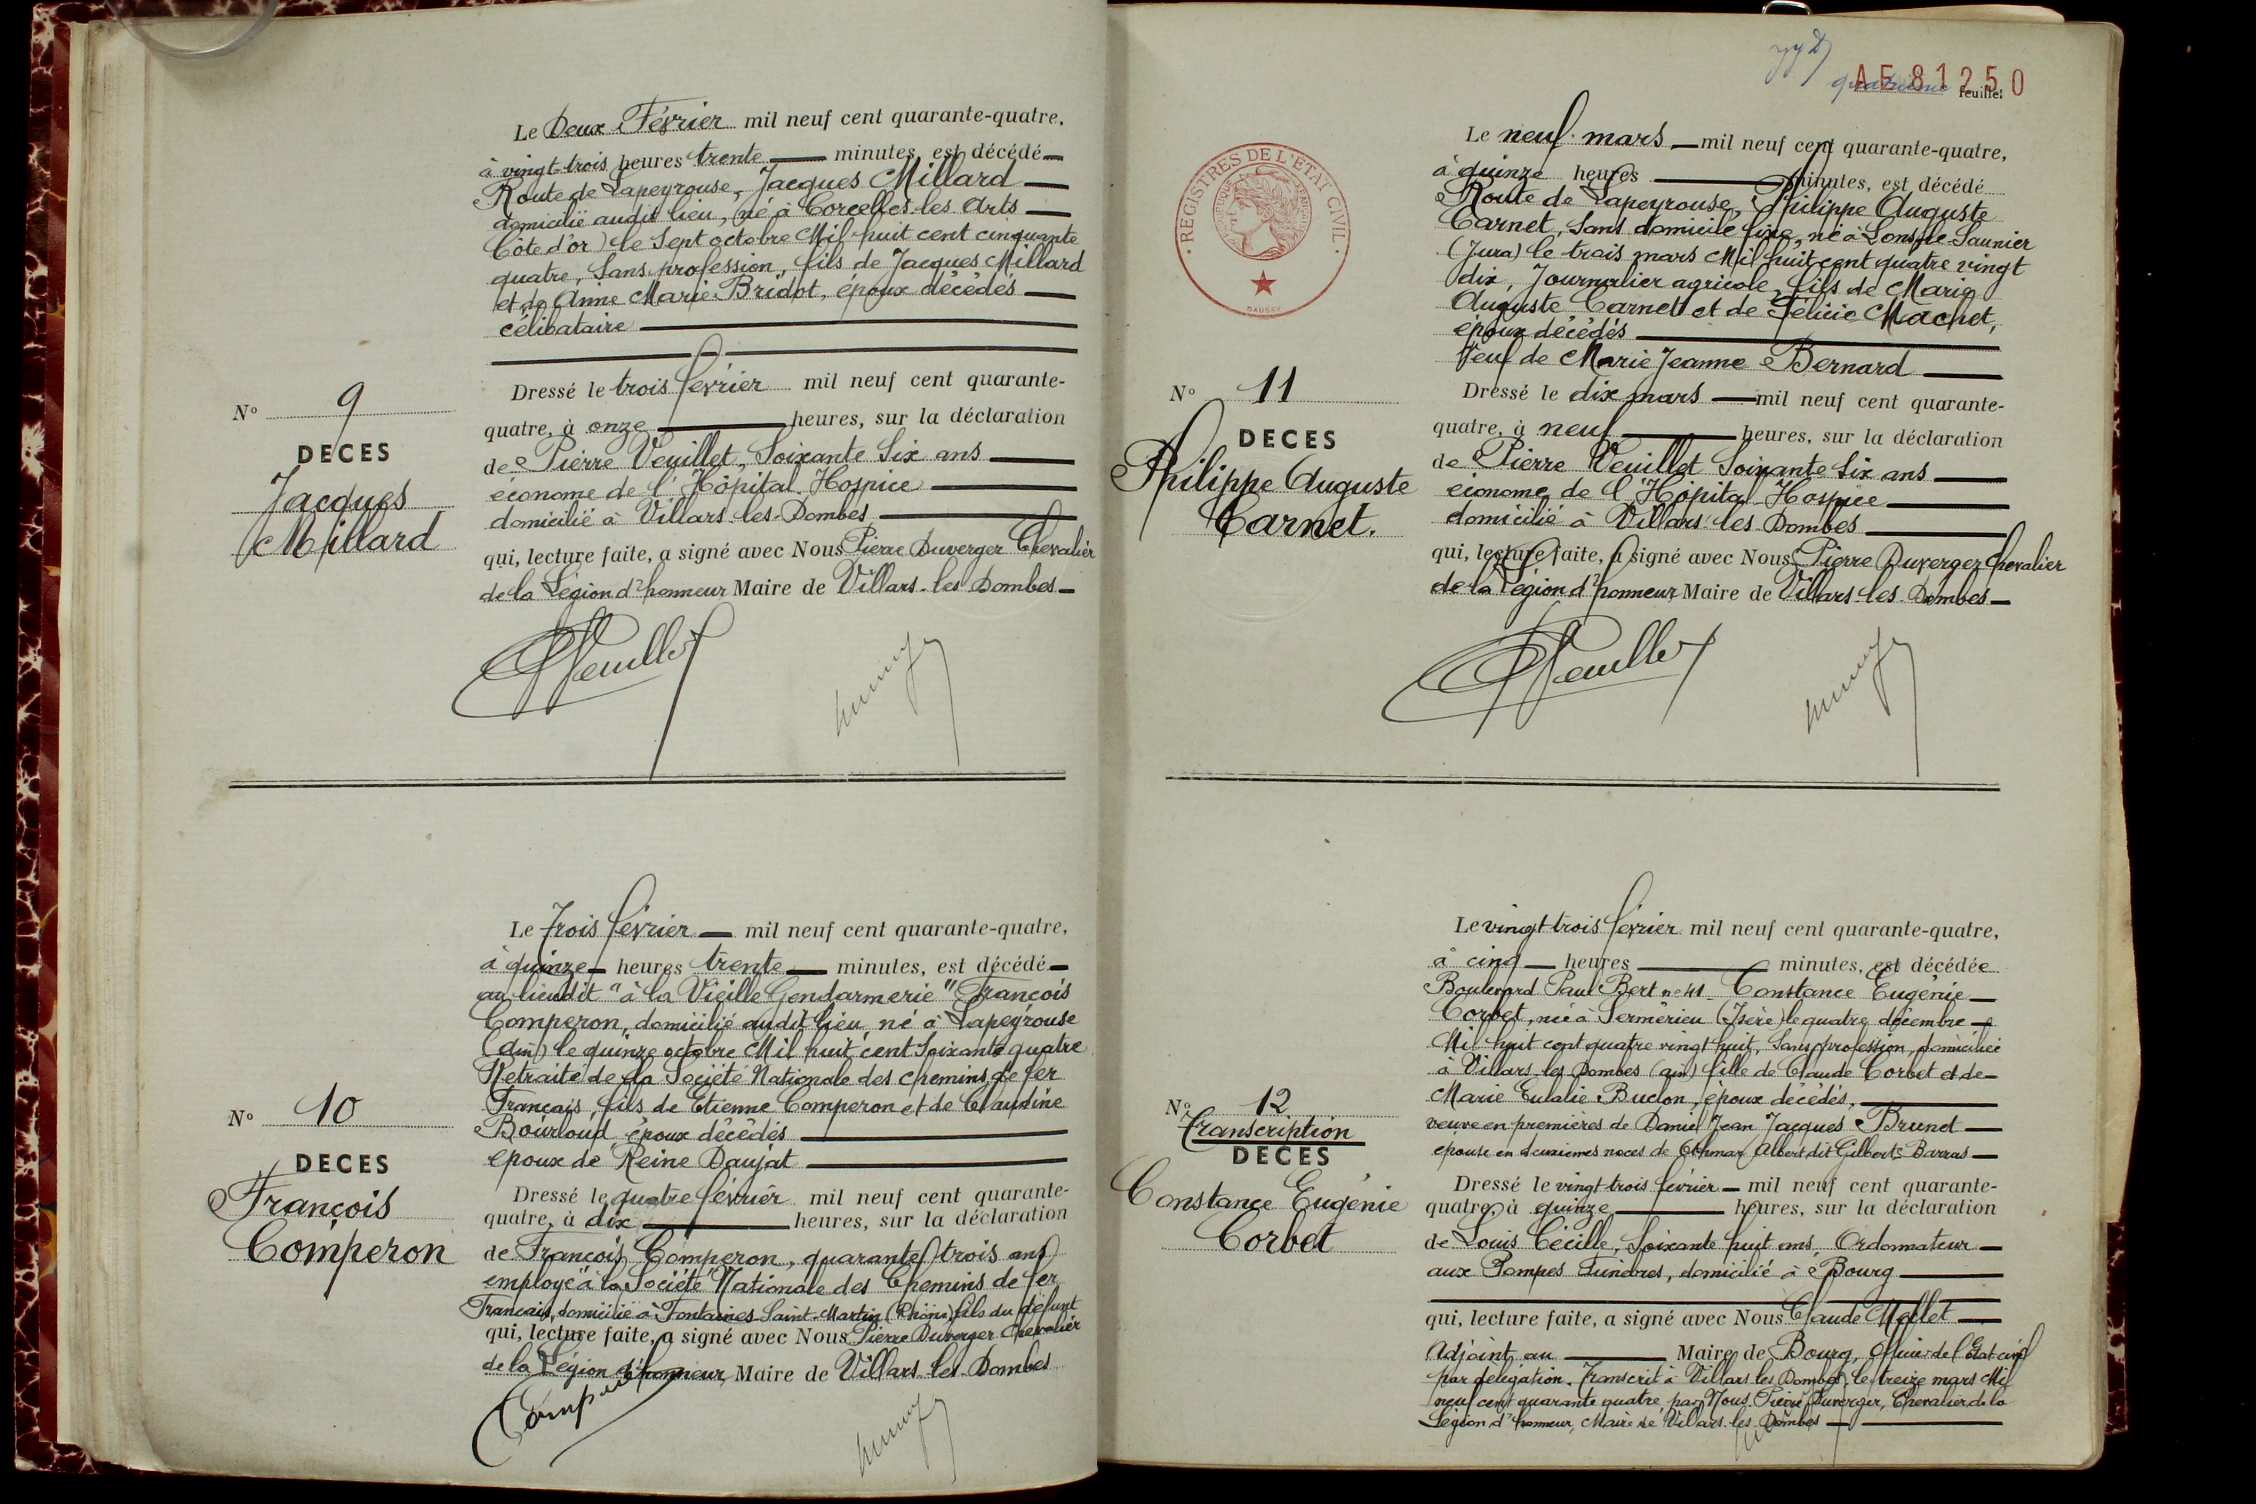 Le Deux Février mil neuf cent quarante-quatre,
à vingt-trois heures trente minutes, est décédé
Route de Lapeyrouse, Jacques Millard
domicilié audit lieu, né à Corcelles-les Arts
Côte d'or) le Sept octobre Mil huit cent cinquante
quatre, Sans profession, fils de Jacques Millard
et de Anne Marie Bridot, époux décédés
célibataire
Dressé le trois février mil neuf cent quarante-
quatre, à onze heures, sur la déclaration
de Pierre Veuillet, Soixante Six ans
économe de l'Hôpital-Hospice
domicilié à Villars-les-Dombes
qui, lecture faite, a signé avec Nous Pierre Duverger Chevalier
de la Légion d'honneur Maire de Villars-les Dombes
N° 9
DECES
Jacques
Millard
PVeuillet
Le Trois février mil neuf cent quarante-quatre,
à quinze heures trente minutes, est décédé
au lieudit "à la Vieille Gendarmerie" François
Comperon, domicilié audit lieu, né à Lapeyrouse
(Ain) le quinze octobre Mil huit cent Soixante quatre
Retraité de la Société Nationale des chemins de fer
Français, fils de Etienne Comperon et de Claudine
Bourloud, époux décédés
époux de Reine Daujat
Dressé le quatre février mil neuf cent quarante-
quatre, à dix heures, sur la déclaration
de François Comperon, quarante trois ans
employé à la Société Nationale des Chemins de fer
Français, domicilié à Fontaines-Saint-Martin (Rhône) fils du défunt
qui, lecture faite, a signé avec Nous Pierre Duverger Chevalier
de la Légion d'honneur, Maire de Villars les Dombes
N° 10
DECES
François
Comperon
Comperon
AE 81250
quatrième feuillet
REGISTRES DE L'ETAT CIVIL
DAUSSY
Le neuf mars mil neuf cent quarante-quatre,
à quinze heures minutes, est décédé
Route de Lapeyrouse, Philippe Auguste
Carnet, Sans domicile fixe, né à Lons-le-Saunier
(Jura) le trois mars Mil huit cent quatre vingt
dix, Journalier agricole, fils de Marie
Auguste Carnet et de Félicie Machet,
époux décédés
Veuf de Marie Jeanne Bernard
Dressé le dix mars mil neuf cent quarante-
quatre, à neuf heures, sur la déclaration
de Pierre Veuillet Soixante Six ans
économe de l'Hôpital-Hospice
domicilié à Villars les Dombes
qui, lecture faite, a signé avec Nous Pierre Duverger Chevalier
de la Légion d'honneur, Maire de Villars-les-Dombes
N° 11
DECES
Philippe Auguste
Carnet.
PVeuillet
Le vingt-trois février mil neuf cent quarante-quatre,
à cinq heures minutes, est décédée
Boulevard Paul Bert n° 41 Constance Eugénie
Corbet, née à Sermérieu (Isère) le quatre décembre
Mil huit cent quatre vingt huit, Sans profession, domiciliée
à Villars les Dombes (ain) fille de Claude Corbet et de
Marie Eulalie Buclon, époux décédés,
veuve en premières de Daniel Jean Jacques Brunet
épouse en deuxièmes noces de Othmar Albert dit Gilbert Barras
Dressé le vingt trois février mil neuf cent quarante-
quatre, à quinze heures, sur la déclaration
de Louis Cécille, Soixante huit ans, Ordonnateur
aux Pompes Funèbres, domicilié à Bourg
qui, lecture faite, a signé avec Nous Claude Mollet
Adjoint au Maire de Bourg, Officier de l'Etat-civil
par délégation. Transcrit à Villars les Dombes, le treize mars Mil
neuf cent quarante quatre, par Nous Pierre Duverger, Chevalier de la
Légion d'honneur, Maire de Villars-les-Dombes
N° 12
Transcription
DECES
Constance Eugénie
Corbet